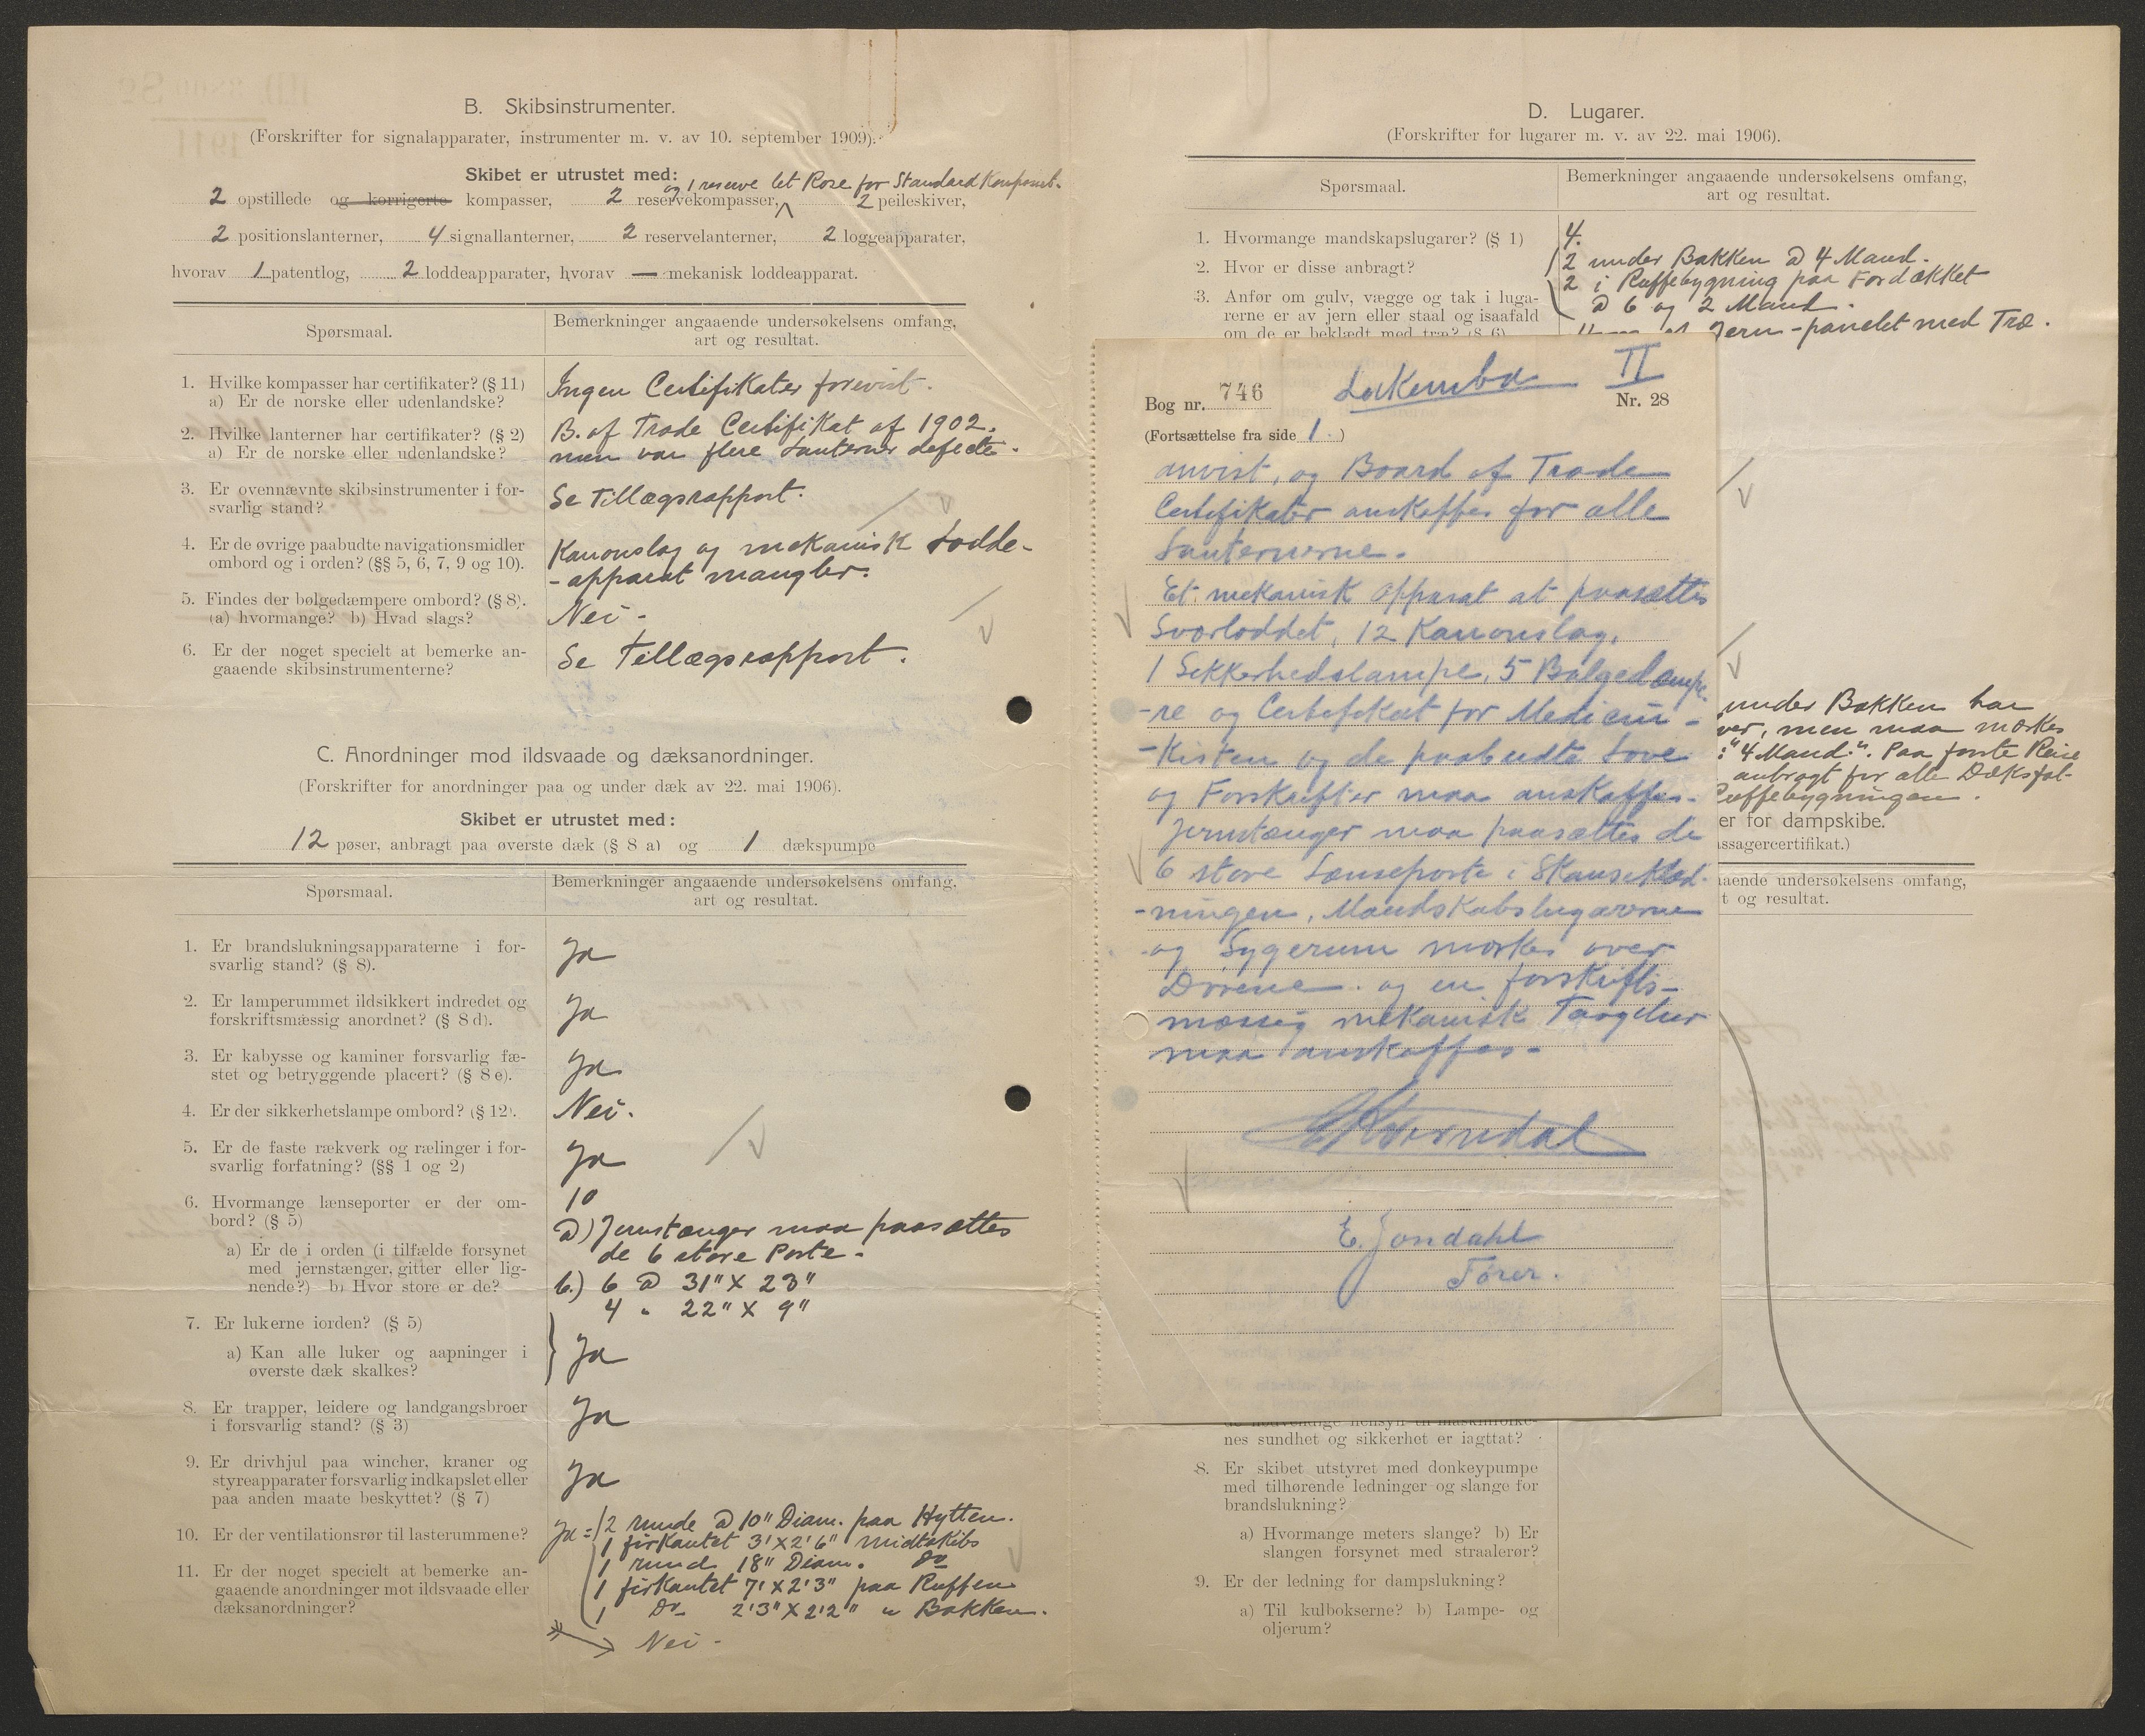 B. Skibsinstrumenter.
(Forskrifter for signalapparater, instrumenter m. v. av 10. september 1909).
Skibet er utrustet med:
og 1 reserve let Rose for Standard Kompasset.
2 opstillede og korrigerte kompasser, 2 reservekompasser, 2 peileskiver,
2 positionslanterner, 4 signallanterner, 2 reservelanterner, 2 loggeapparater,
hvorav 1 patentlog, 2 loddeapparater, hvorav — mekanisk loddeapparat.
Spørsmaal.
Bemerkninger angaaende undersøkelsens omfang,
art og resultat.
1. Hvilke kompasser har certifikater? (§ 11)
a) Er de norske eller udenlandske?
Ingen Certifikater forevist.
2. Hvilke lanterner har certifikater? (§ 2)
a) Er de norske eller udenlandske?
B. of Trade Certifikat af 1902.
men var flere Lanterner defecte.
3. Er ovennævnte skibsinstrumenter i for-
svarlig stand?
Se Tillægsrapport.
4. Er de øvrige paabudte navigationsmidler
ombord og i orden? (§§ 5, 6, 7, 9 og 10).
Kanonslag og mekanisk Lodde-
-apparat mangler.
5. Findes der bølgedæmpere ombord? (§ 8).
(a) hvormange? b) Hvad slags?
Nei -
6. Er der noget specielt at bemerke an-
gaaende skibsinstrumenterne?
Se Tillægsrapport.
C. Anordninger mod ildsvaade og dæksanordninger.
(Forskrifter for anordninger paa og under dæk av 22. mai 1906).
Skibet er utrustet med:
12 pøser, anbragt paa øverste dæk (§ 8 a) og 1 dækspumpe
Spørsmaal.
Bemerkninger angaaende undersøkelsens omfang,
art og resultat.
1. Er brandslukningsapparaterne i for-
svarlig stand? (§ 8).
Ja
2. Er lamperummet ildsikkert indredet og
forskriftsmæssig anordnet? (§ 8 d).
Ja
3. Er kabysse og kaminer forsvarlig fæ-
stet og betryggende placert? (§ 8 e).
Ja
4. Er der sikkerhetslampe ombord? (§ 12).
Nei.
5. Er de faste rækverk og rælinger i for-
svarlig forfatning? (§§ 1 og 2)
Ja
6. Hvormange lænseporter er der om-
bord? (§ 5)
10
a) Er de i orden (i tilfælde forsynet
med jernstænger, gitter eller lig-
nende?) b) Hvor store er de?
a) Jernstænger maa paasættes
de 6 store Porte -
b.) 6 a 31" X 23"
4 " 22" X 9"
7. Er lukerne iorden? (§ 5)
a) Kan alle luker og aapninger i
øverste dæk skalkes?
Ja
8. Er trapper, leidere og landgangsbroer
i forsvarlig stand? (§ 3)
Ja
9. Er drivhjul paa wincher, kraner og
styreapparater forsvarlig indkapslet eller
paa anden maate beskyttet? (§ 7)
Ja
10. Er der ventilationsrør til lasterummene?
Ja = 2 runde a 10" Diam. paa Hytten.
1 firkantet 3' X 2' 6" midtskibs
1 rund 18" Diam. Do
1 firkantet 7' X 2' 3" paa Ruffen
1 Do 2'3" X 2'2" " Bakken.
11. Er der noget specielt at bemerke an-
gaaende anordninger mot ildsvaade eller
dæksanordninger?
Nei -
D. Lugarer.
(Forskrifter for lugarer m. v. av 22. mai 1906).
Spørsmaal.
Bemerkninger angaaende undersøkelsens omfang,
art og resultat.
1. Hvormange mandskapslugarer? (§ 1)
4.
2. Hvor er disse anbragt?
2 under Bakken a 4 Mand.
2 i Ruffebygning paa Fordækket
a 6 og 2 Mand.
3. Anfør om gulv, vægge og tak i luga-
rerne er av jern eller staal og isaafald
om de er beklædt med træ? (§ 6)
Jern - panelet med Træ.
Bog nr. 746
Lakemba II
Nr. 28
(Fortsættelse fra side 1.)
anvist, og Board of Trade
Certifikater anskaffes for alle
Lanternerne.
Et mekanisk apparat at paasættes
Sværloddet, 12 Kanonslag,
1 Sikkerhedslampe, 5 Bølgedæmpe-
-re og Certifikat for Medicin-
-Kisten og de paabudte Love
og Forskrifter maa anskaffes -
Jernstænger maa paasættes de
6 store Lænseporte i Skanseklæd-
-ningen, Mandskabslugarerne
og Sygerum mærkes over
Dørene. og en forskrifts-
mæssig mekanisk Taagelur
maa anskaffes -
E. Jondahl
Fører.
under Bakken har
ver, men maa mærkes
: "4 Mand". Paa første Reise
anbragt for alle Dæksfol-
Ruffebygningen.
er for dampskibe.
ssagercertifikat.)
aaende undersøkelsens omfang,
t og resultat.
de nødvendige hensyn til maskinfolke-
nes sundhet og sikkerhet er iagttat?
8. Er skibet utstyret med donkeypumpe
med tilhørende ledninger og slange for
brandslukning?
a) Hvormange meters slange? b) Er
slangen forsynet med straalerør?
9. Er der ledning for dampslukning?
a) Til kulbokserne? b) Lampe- og
oljerum?